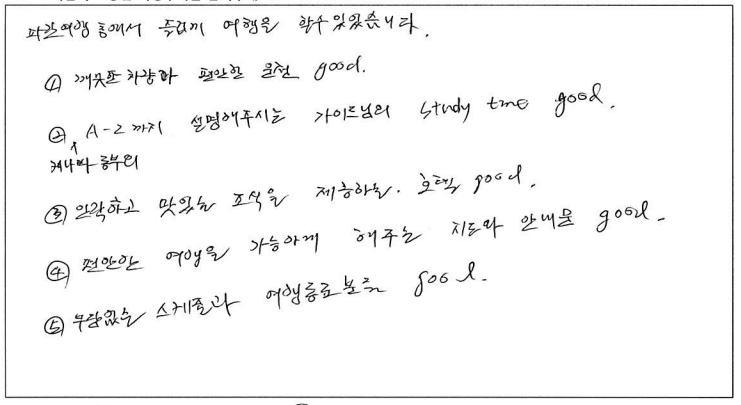 파란여행 통해서 즐겁게 여행을 할수 있었습니다.
① 깨끗한 차량과 편안한 운전 good.
② A-Z까지 설명해주시는 가이드님의 study tme good.
캐나다 동부의
③ 안락하고 맛있는 조식을 제공하는. 호텔 good.
④ 편안한 여행을 가능하게 해주는 지도와 안내물 good.
⑤ 무람없는 스케줄과 good.